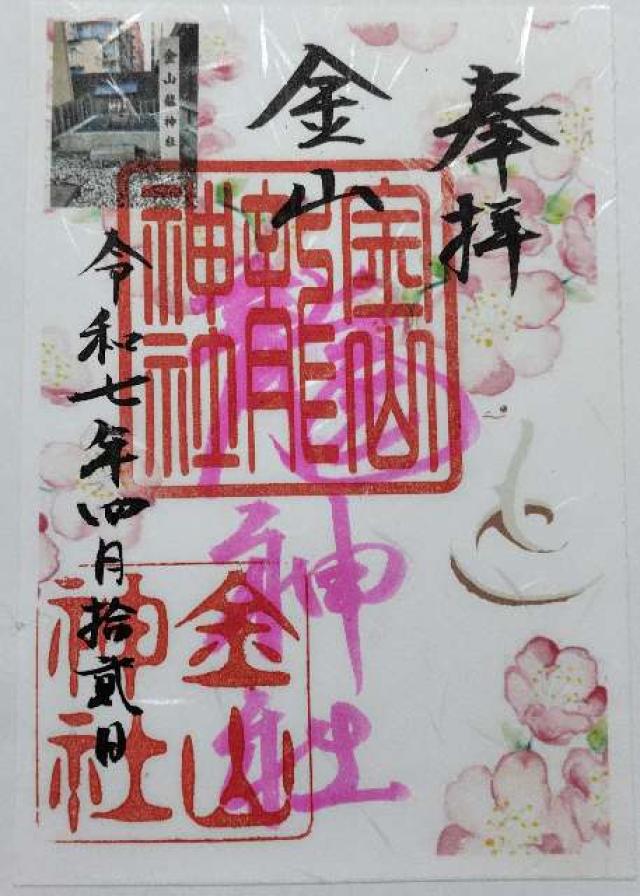 奉拝
金山
龍神社
令和七年四月拾貳日
金山龍神社
金山神社
金山龍神社